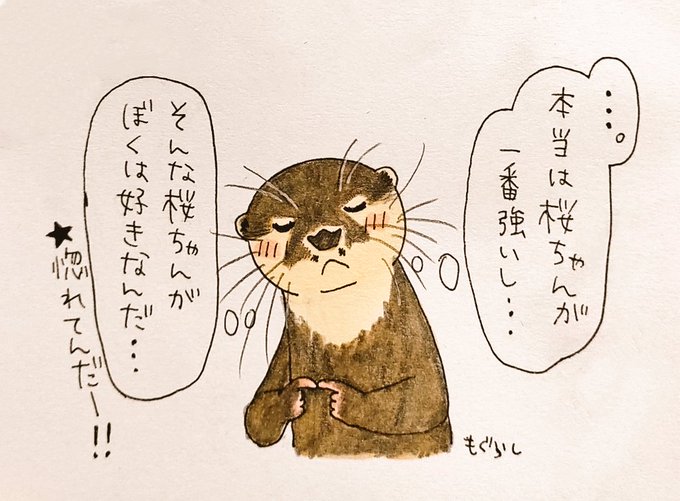 …。
本当は桜ちゃんが
一番強いし…
そんな桜ちゃんが
ぼくは好きなんだ…
★惚れてんだー!!
もぐらし